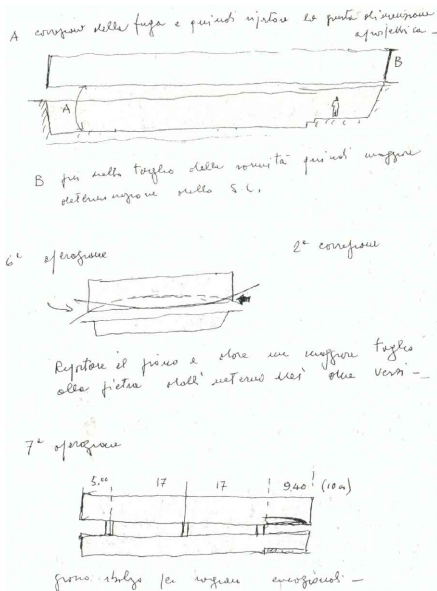 A correzione della fuga e quindi riportare la giusta dimensione
prospettica -
B
A
B più netto taglio della sommità quindi maggiore
determinazione nello S.C.
6ª operazione
2ª correzione
Riportare il piano e dare un maggior taglio
alla pietra dall'interno nei due versi -
7ª operazione
5.00 17 17 9.40 (10 m)
grono sbalzo per ragioni emozionali -